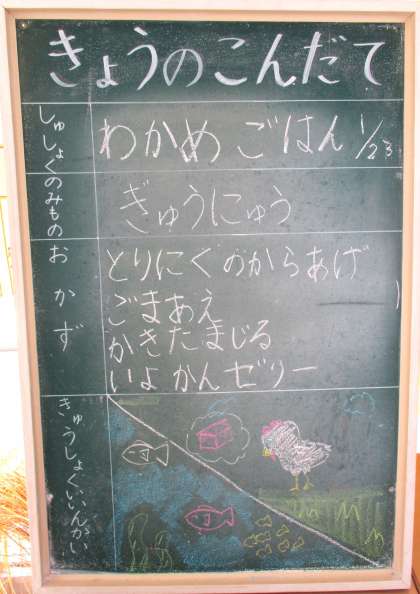 きょうのこんだて
しゅしょく
わかめ ごはん 1/23
のみもの
ぎゅうにゅう
おかず
とりにくのからあげ
ごまあえ
かきたまじる
いよかんゼリー
きゅうしょくいいんかい